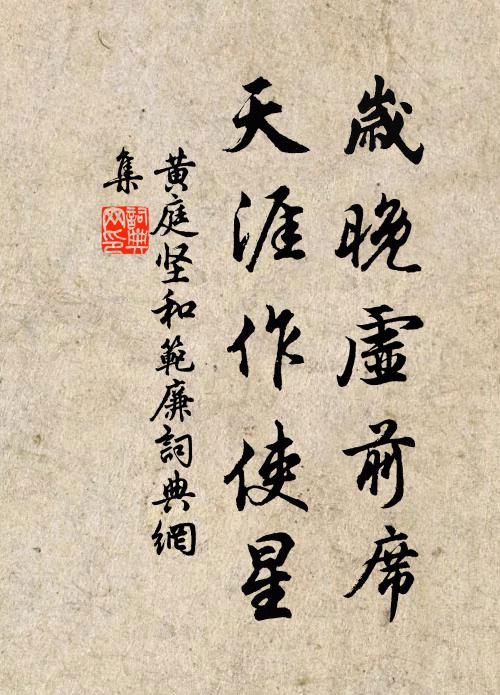 歲晚虛前席
天涯作使星
黄庭坚和範廉詞典網
集
詞典網印